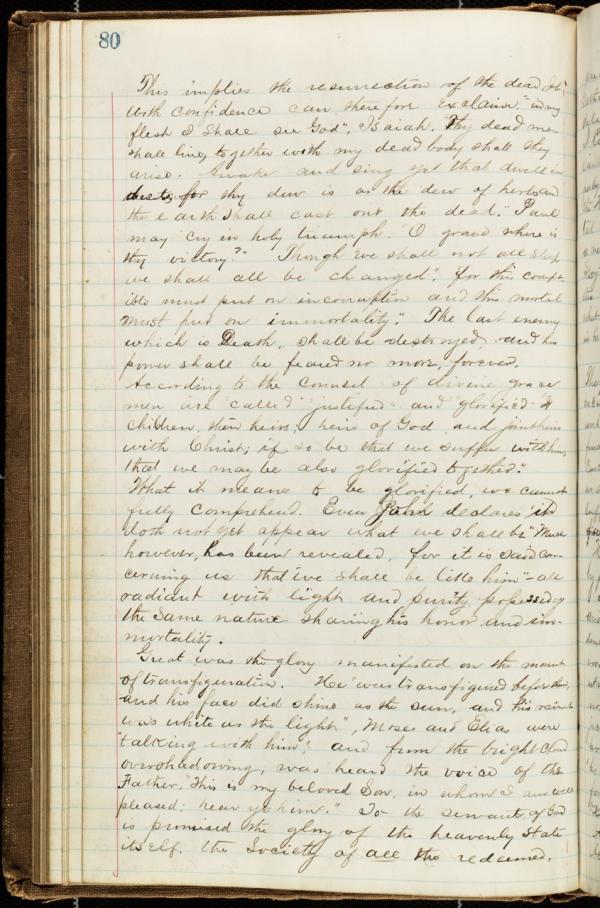 80
This implies the resurrection of the dead. Job
with confidence can therefore exclaim "in my
flesh I shall see God". Isaiah. "Thy dead men
shall live, together with my dead body shall they
arise. Awake and sing yet that dwell in
dust, for thy dew is as the dew of herbs and
the earth shall cast out the dead." Paul
may cry in holy triumph "O grave where is
thy victory?" Though "we shall not all sleep
we shall all be changed". for this corupt-
ible must put on incorruption and this mortal
must put on immortality". The last enemy
which is Death, shall be destroyed, and his
power shall be feared no more, forever.
According to the counsel of divine grace
men are "called" "justified" and "glorified"
children, then heirs; heirs of God and jointheirs
with Christ; if so be that we suffer with him,
that we may be also glorified together."
What it means to be glorified, we cannot
fully comprehend. Even John declares "it
doth not yet appear what we shall be." Much
however, has been revealed, for it is said con-
cerning us that "we shall be like him" - all
radiant with light and purity, possessing
the same nature sharing his honor and im-
mortality.
Great was the glory manifested on the mount
of transfiguration. He "was transfigured before them,
and his face did shine as the sun, and his raiment
was white as the light", Moses and Elias were
"talking with him", and from the bright cloud
overshadowing, was heard the voice of the
Father, "This is my beloved Son, in whom I am well
pleased; hear ye him." To the servant of God
is promised the glory of the heavenly state
itself. the Society of all the redeemed,